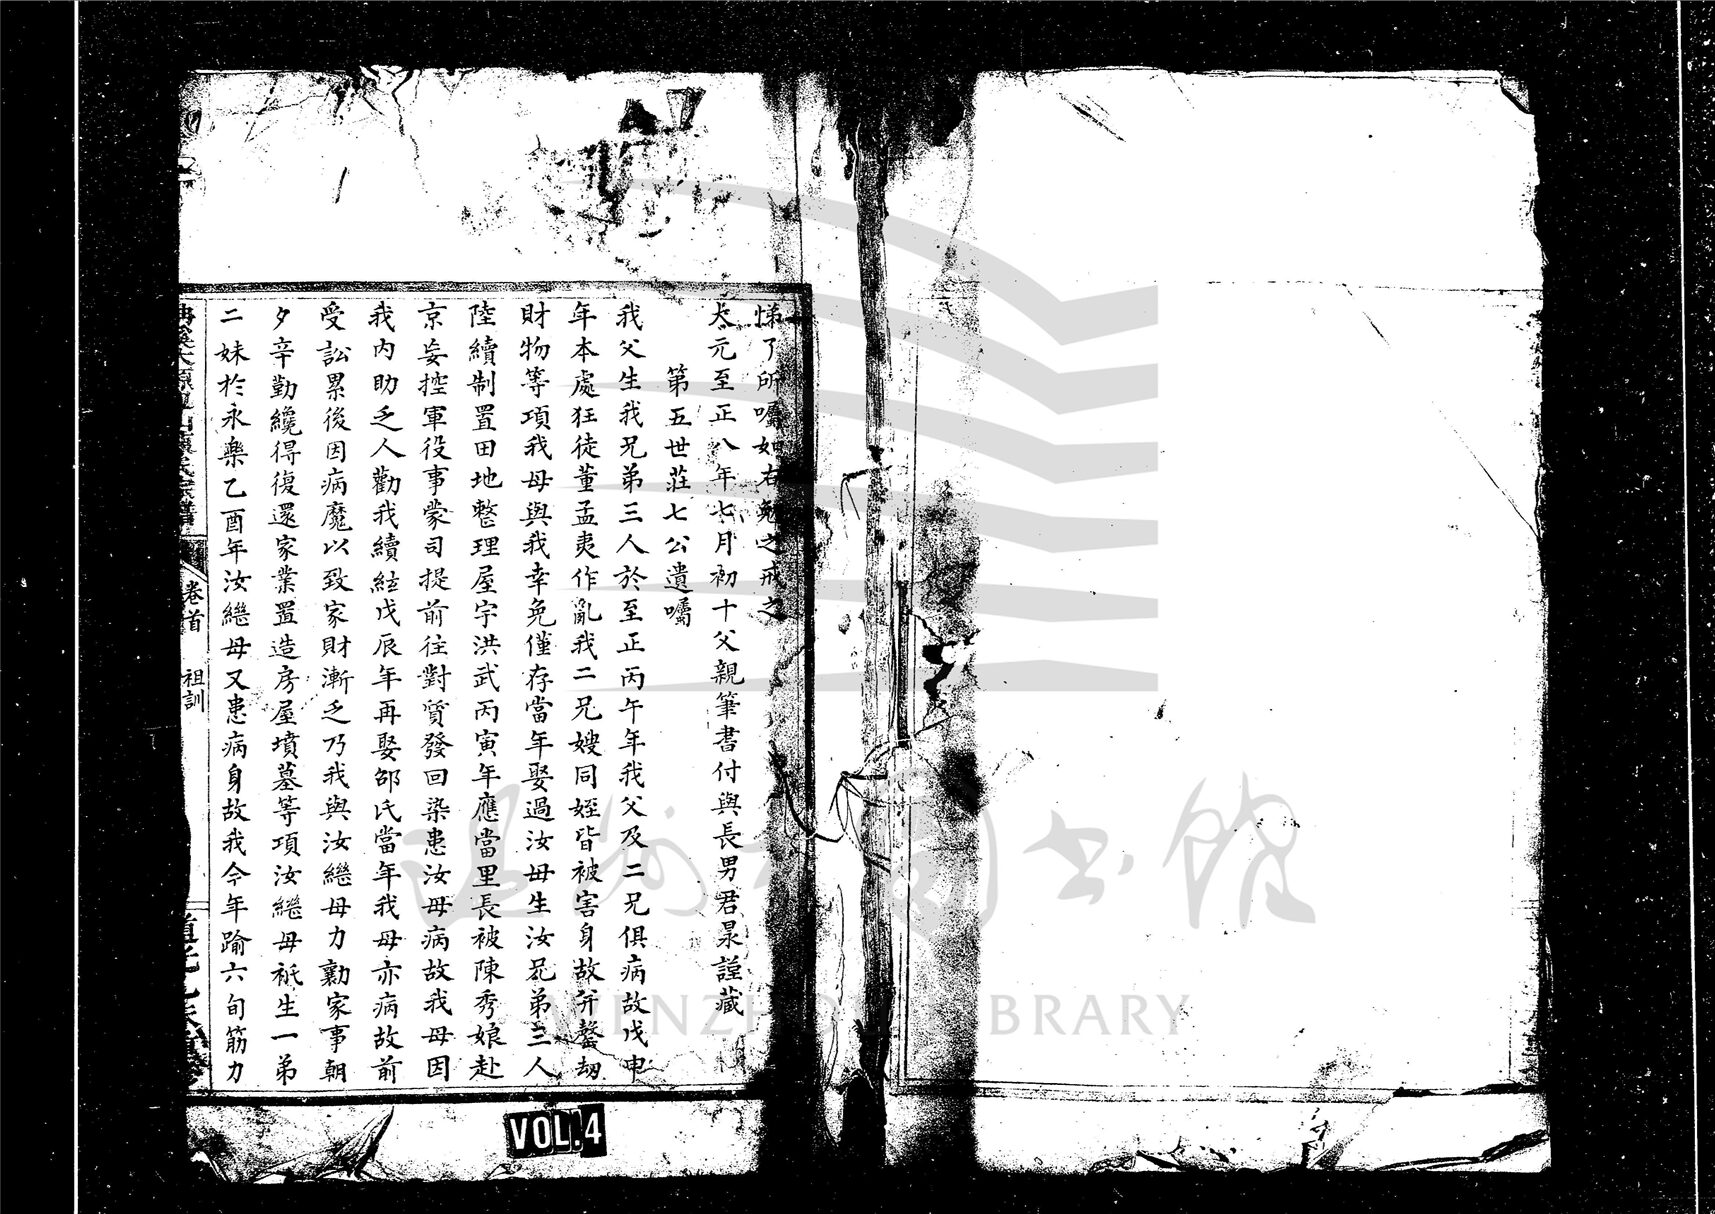 悌了所囑如右勉之戒之
大元至正八年七月初十父親筆書付與長男君杲謹藏
第五世莊七公遺囑
我父生我兄弟三人於至正丙午年我父及二兄俱病故戊申
年本處狂徒董孟夷作亂我二兄嫂同姪皆被害身故并罄刧
財物等項我母與我幸免僅存當年娶過汝母生汝兄弟三人
陸續制置田地整理屋宇洪武丙寅年應當里長被陳秀娘赴
京妄控軍役事蒙司提前往對質發回染患汝母病故我母因
我內助乏人勸我續絃戊辰年再娶邵氏當年我母亦病故前
受訟累後因病魔以致家財漸乏乃我與汝繼母力勷家事朝
夕辛勤纔得復還家業置造房屋墳墓等項汝繼母衹生一弟
二妹於永樂乙酉年汝繼母又患病身故我今年踰六旬筋力
卷首 祖訓
VOL.4
WENZHOU LIBRARY